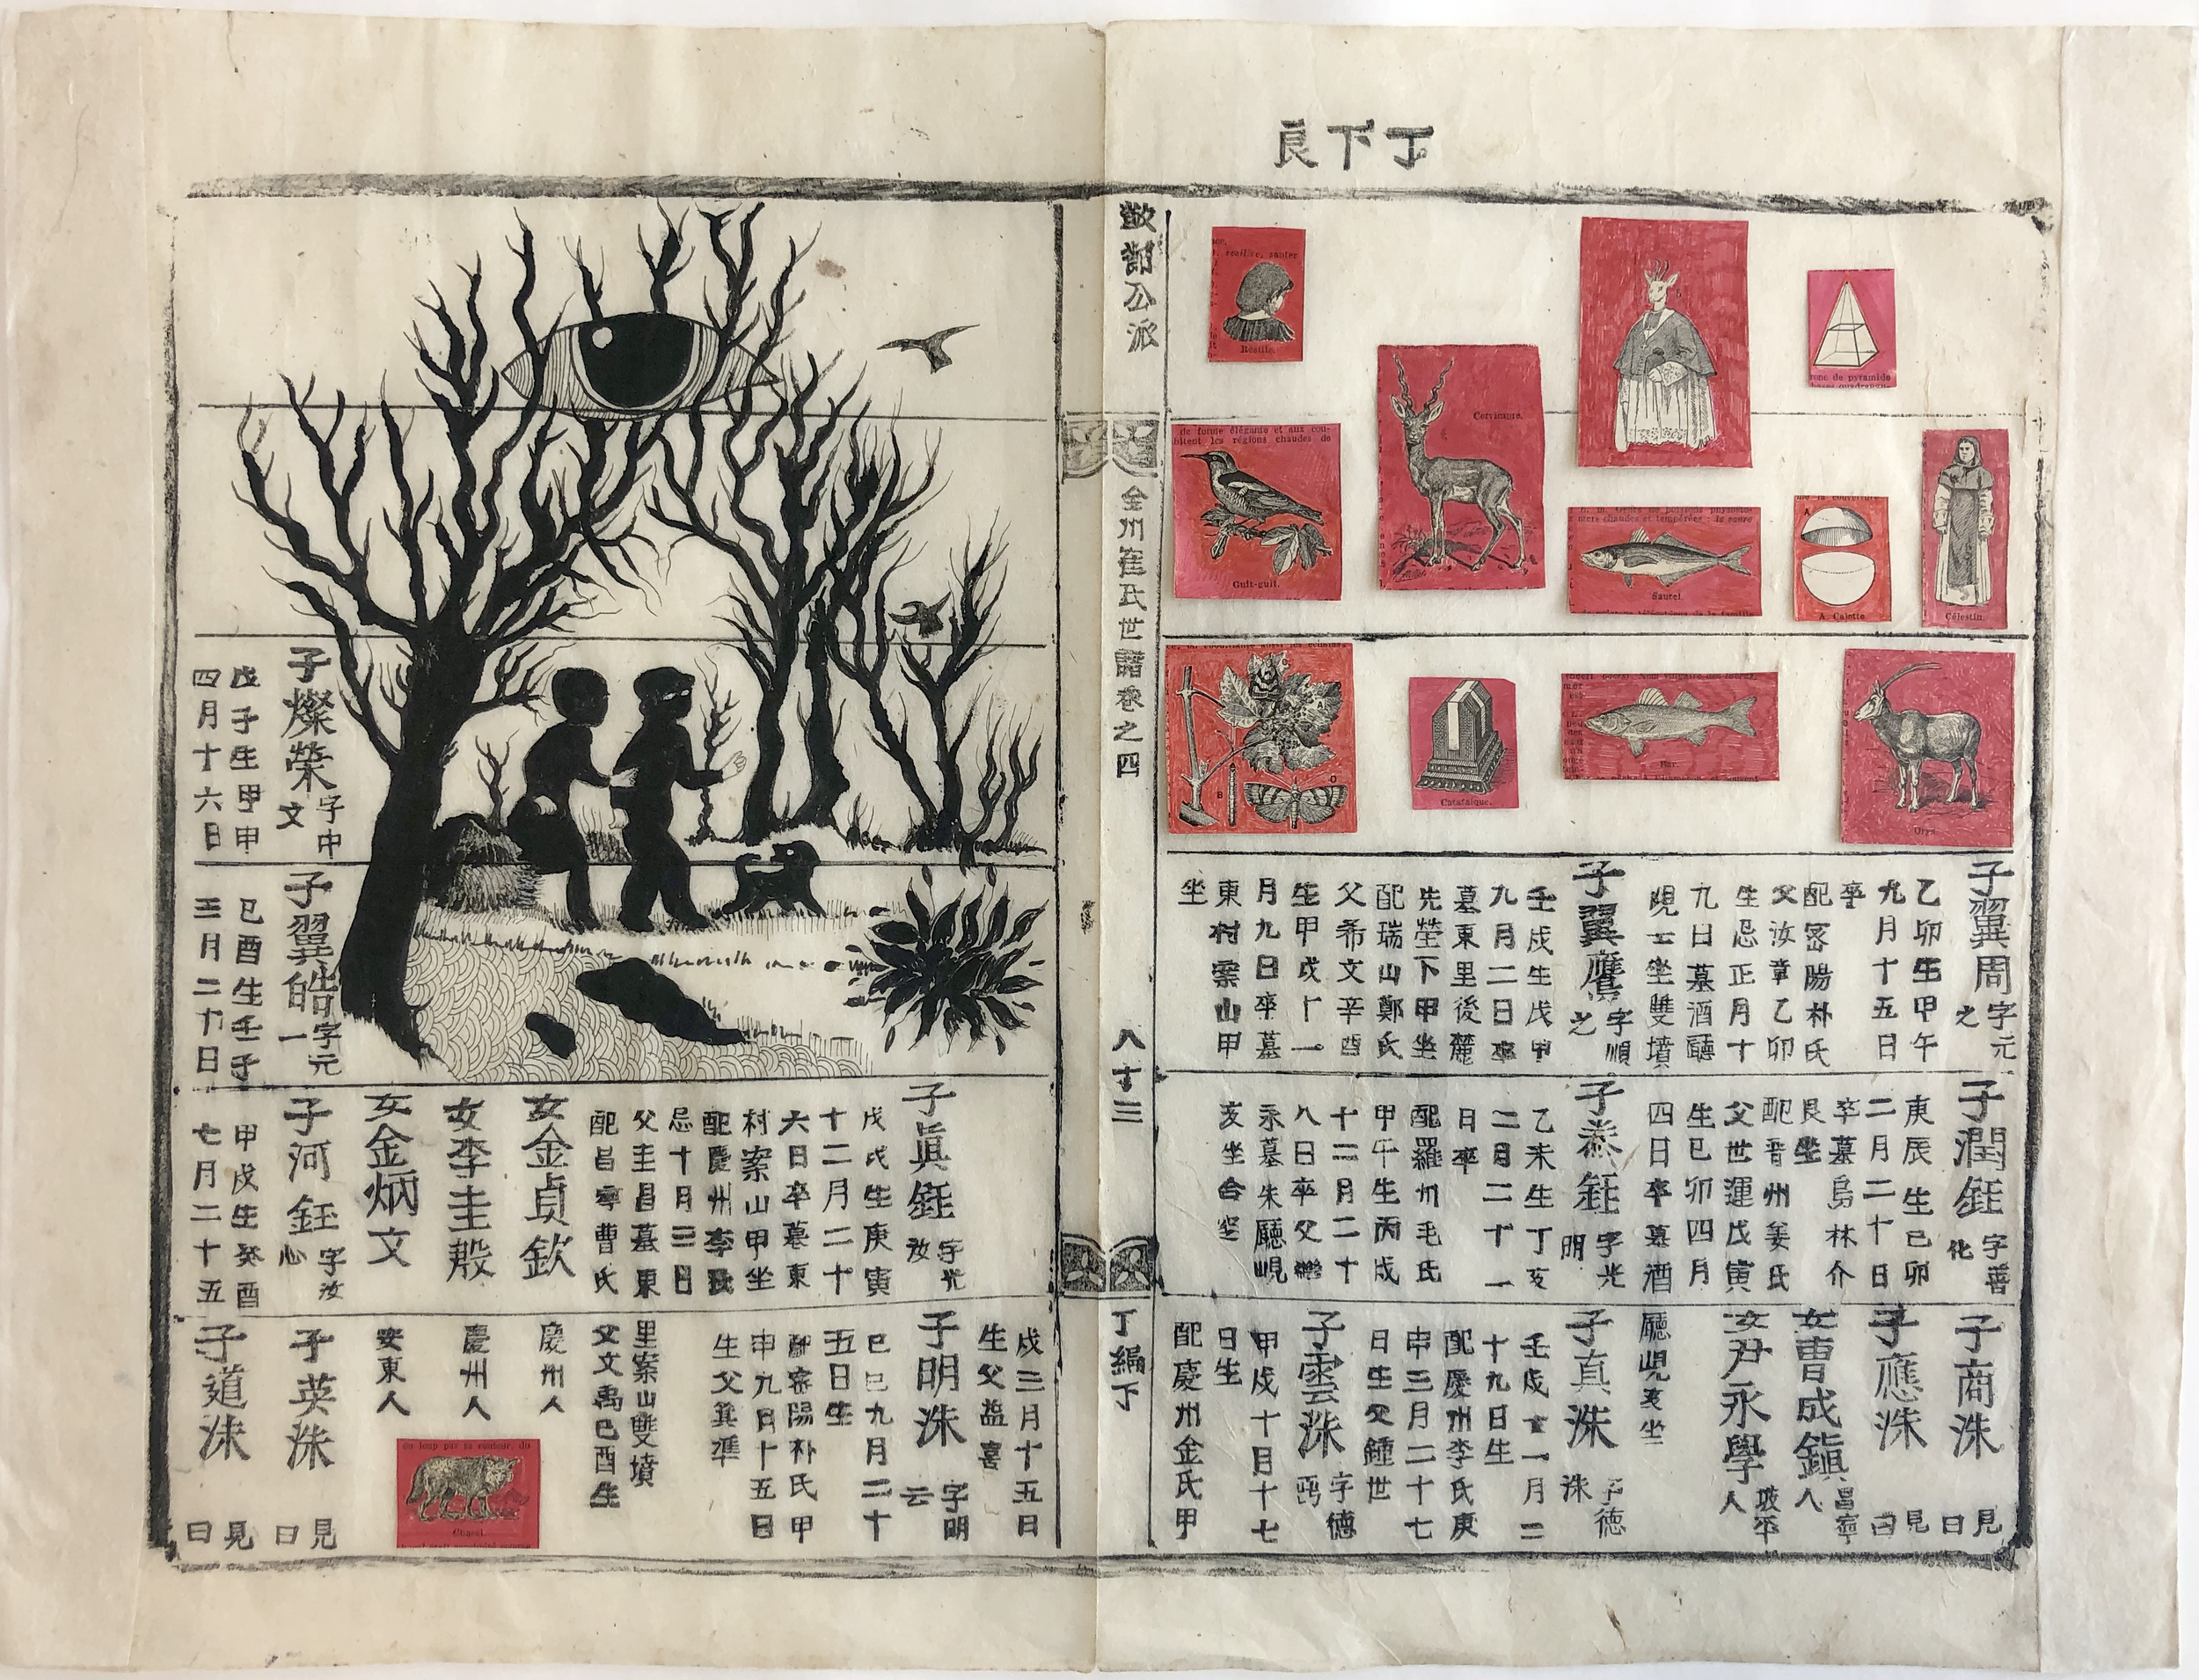 丁下良
公派
全州崔氏世譜卷之四
八十三
丁編下
ace.
résiller, sauter
Résille.
Cervicapre.
renc de pyramide
de forme élégante et aux cou-
bitent les régions chaudes de
Guit-guit.
mers chaudes et tempérées : le saurel
Saurel
A
A. Calotte
Célestin
A
B
Catafalque.
Bar.
Oryx
子翼周 字元之
乙卯生甲午
九月十五日
卒
配密陽朴氏
父汝章乙卯
生忌正月十
九日墓酒聽
峴 坐雙墳
子翼鷹 字順之
壬戌生戊申
九月二日卒
墓東里後麓
先塋下甲坐
配瑞山鄭氏
父希文辛酉
生甲戌十一
月九日卒墓
東村案山甲
坐
子潤鈺 字善化
庚辰生己卯
二月二十日
卒墓烏林介
艮坐
配晋州姜氏
父世運戊寅
生己卯四月
四日卒墓酒
子 鈺 字光明
乙未生丁亥
二月二十一
日卒
配羅州毛氏
甲午生丙戌
十二月二十
八日卒父
永墓朱廳峴
亥坐合
子商洙 見日
子應洙 見日
女曹成鎭 昌寧人
女尹永學 坡平人
廳峴亥坐
子真洙 字德洙
壬戌十一月二
十九日生
配慶州李氏庚
申三月二十七
日生父鍾世
子雲洙 字德
甲戌十月十七
日生
配慶州金氏甲
子燦榮 字中文
戊子生甲申
四月十六日
子翼皓 字元一
己酉生壬子
三月二十日
子眞鈺 字光汝
戊戌生庚寅
十二月二十
六日卒墓東
村案山甲坐
配慶州李氏
忌十月三日
父圭昌墓東
配昌寧曹氏
女金貞欽
女李圭殷
女金炳文
子河鈺 字汝心
甲戌生癸酉
七月二十五
戌三月十五日
生父益喜
子明洙 字明云
己巳九月二十
五日生
配密陽朴氏甲
申九月十五日
生父箕準
里案山雙墳
父文禹己酉生
慶州人
慶州人
安東人
du loup par sa couleur, du
Chacal.
子英洙 見日
子道洙 見日